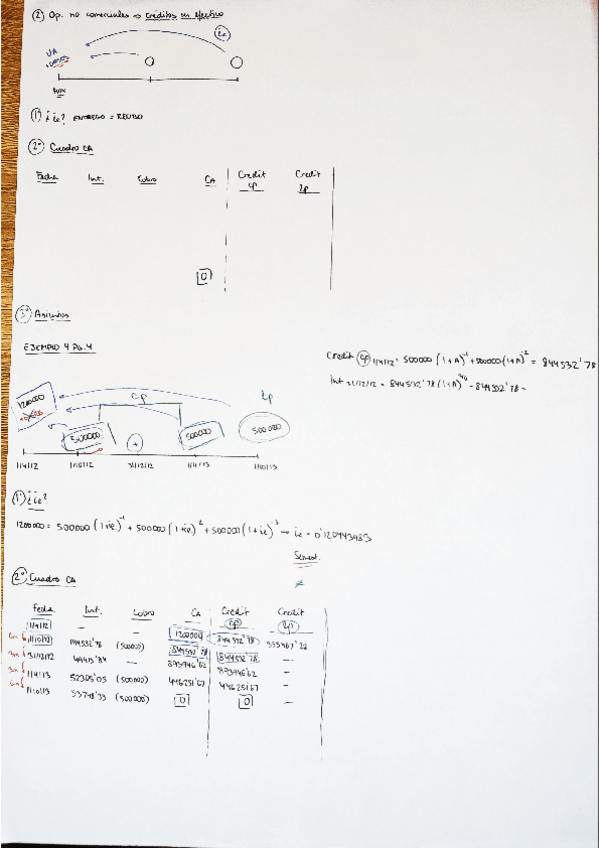 ② Op. no comerciales → Créditos en efectivo
ie
VA
①º ¿ie? ENTREGO = RECIBO
②º Cuadro CA
Fecha Int. Cobro CA Credit cp Credit lp
0
③º Asientos
EJEMPLO 4 PG. 4
Credit cp 1/4/12 = 500000 (1+A)⁻¹ + 500000 (1+A)⁻² = 844532'78
Int 31/12/12 = 844532'78 (1+A) - 844532'78 =
cp lp
1200000
500000 + 500000 500000
1/4/12 1/10/12 31/12/12 1/4/13 1/10/13
①º ¿ie?
1200000 = 500000 (1+ie)⁻¹ + 500000 (1+ie)⁻² + 500000 (1+ie)⁻³ → ie = 0'120443483
Semest.
②º Cuadro CA
Fecha Int. Cobro CA Credit cp Credit lp
1/4/12 — — 1200000 844532'78 355467'22
6m 1/10/12 144532'78 (500000) 844532'78 844532'78 —
3m 31/12/12 49413'84 — 893946'62 893946'62 —
3m 1/4/13 52305'05 (500000) 446251'67 446251'67 —
6m 1/10/13 53748'33 (500000) 0 0 —